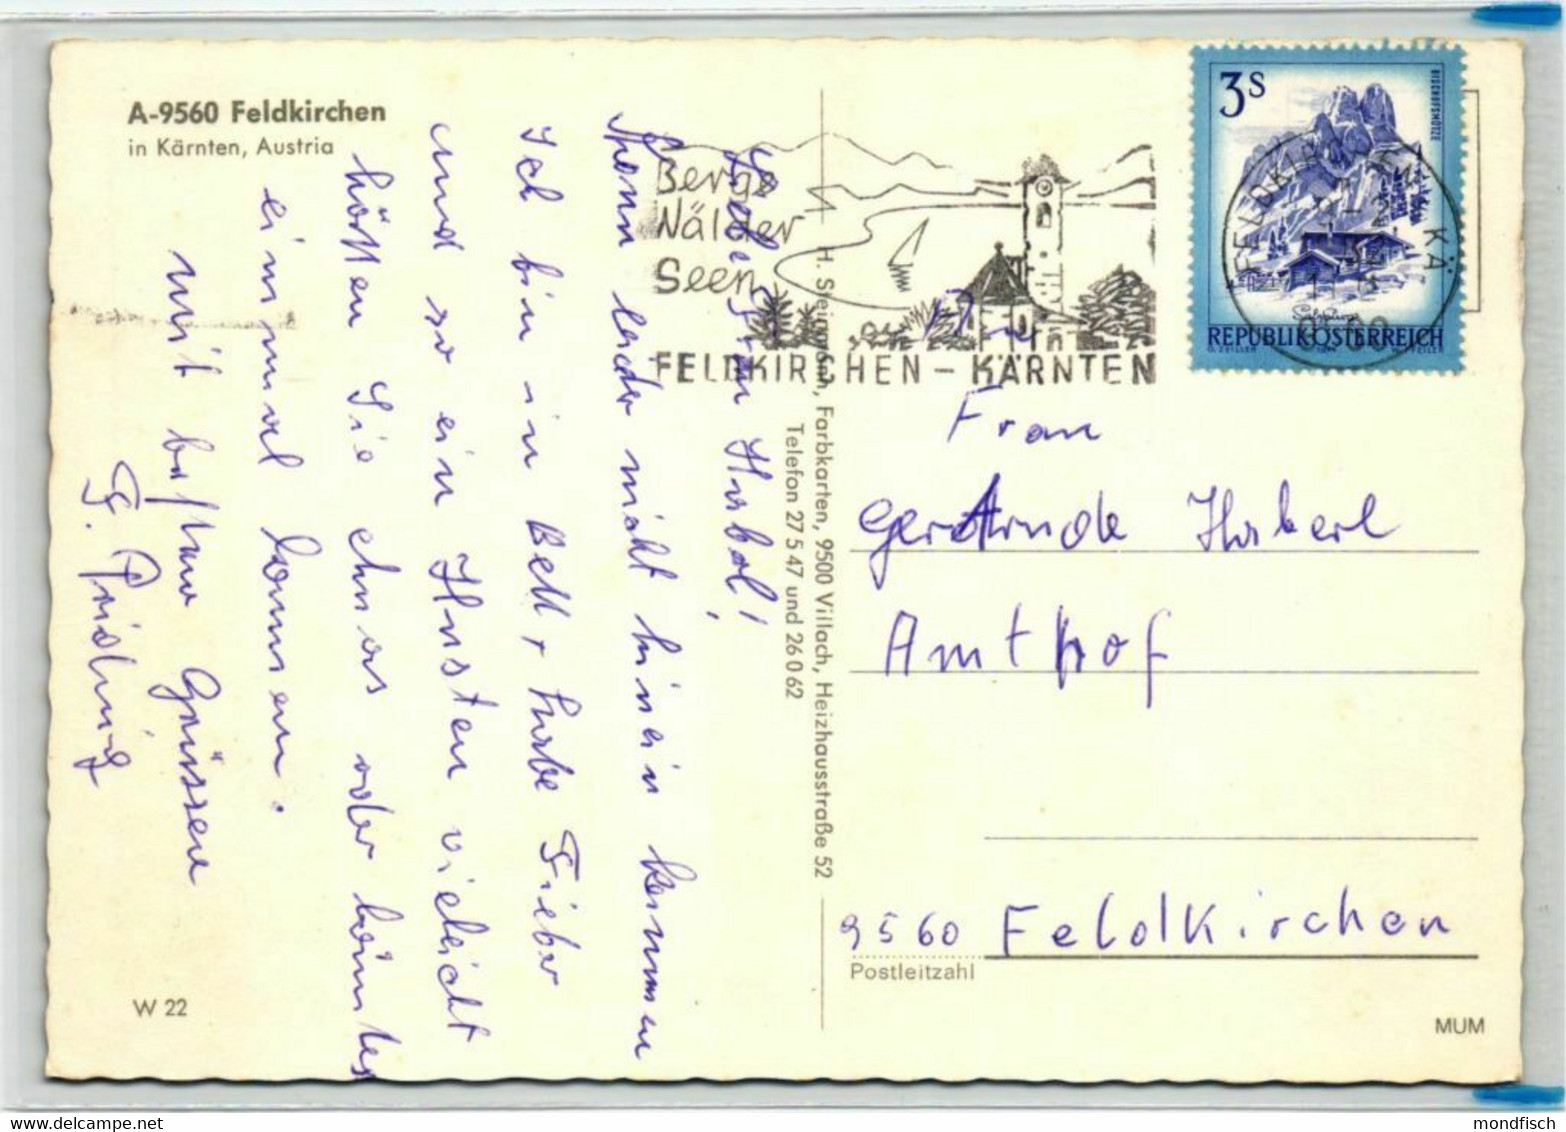 A-9560 Feldkirchen
in Kärnten, Austria
Liebe Frau Habel!
leider nicht hinein kommen
Ich bin in Bett, habe Fieber
und so ein Husten vieleicht
hätten Sie etwas oder könntes
einmal kommen.
mit besten Grüssen
W 22
Berge
Wälder
Seen
FELDKIRCHEN – KÄRNTEN
H. Steigmann, Farbkarten, 9500 Villach, Heizhausstraße 52
Telefon 27 5 47 und 26 0 62
3 S
BISCHOFSMÜTZE
Salzburg
REPUBLIK ÖSTERREICH
FELDKIRCHEN KÄ
Frau
Gertrude Haberl
Amthof
9560 Feldkirchen
Postleitzahl
MUM
mondfisch